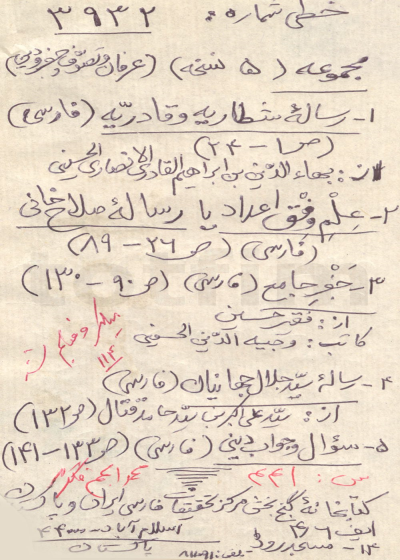 خطی شماره: ۳۹۳۲
مجموعه (۵ نسخه) (عرفان و تصوف و جفر و دینی)
۱- رسالۀ شطاریه و قادریّه (فارسی)
(ص۱ - ۲۴)
از: بهاء الدّین بن ابراهیم القادری الانصاری الحسینی
۲- عِلْمِ وِفْقْ اعداد یا رسالۀ صلاح خانی
(فارسی) (ص ۲۶ - ۸۹)
۳- جَفْرِ جامع (فارسی) (ص ۹۰ - ۱۳۰)
از: فقیر حسین
کاتب: وجیه الدّین الحسینی
۴- رسالۀ سیّد جلال جهانیان (فارسی)
از: سیّد علی اکبر بن سیّد حامد قتال (ص ۱۳۲)
۵- سؤال و جواب دینی (فارسی) (ص ۱۳۳ - ۱۴۱)
س: ۴۴۱
کتابخانۀ گنج بخش مرکز تحقیقات فارسی ایران و پاکستان
اسلام آباد
پاکستان